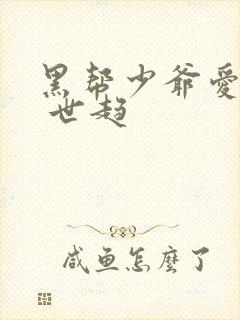 黑帮少爷愛
世趙
咸鱼怎麼了